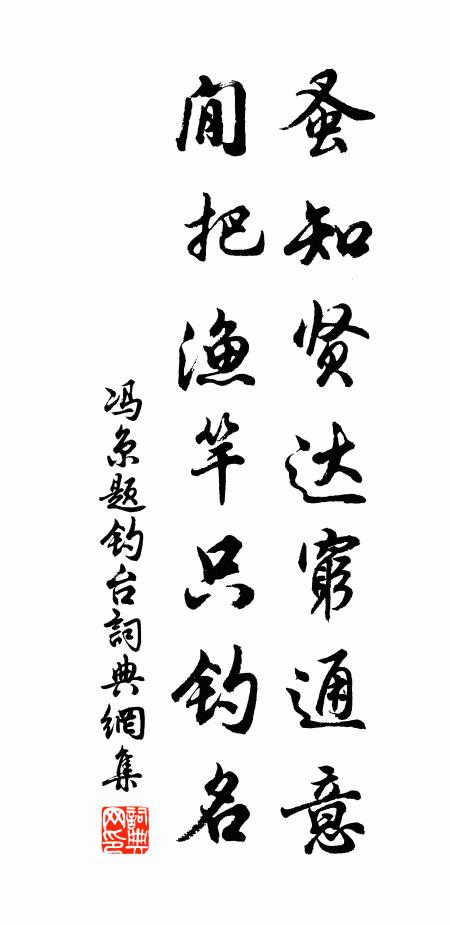 蚤知贤达窮通意
閒把渔竿只钓名
冯京题钓台詞典網集
詞典
网印